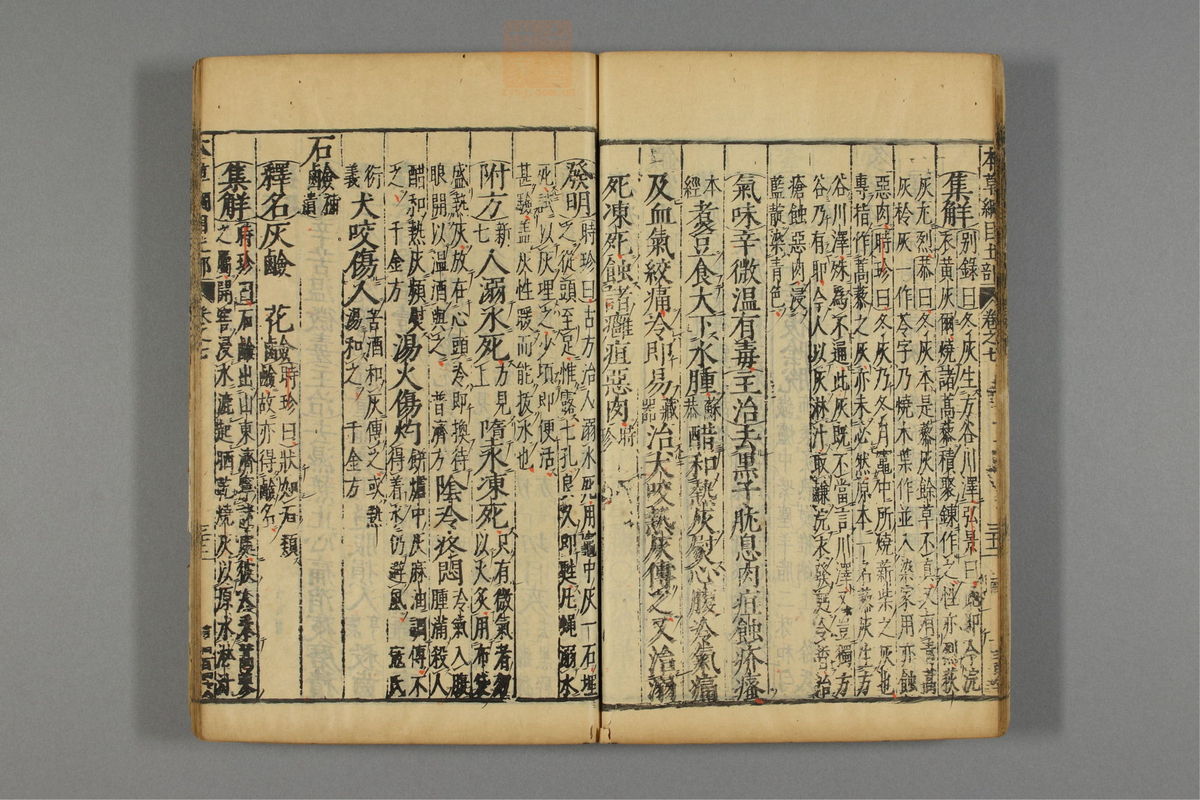 本草綱目土部 卷之七
集解 别錄曰冬灰生方谷川澤弘景曰此即今浣
衣黄灰爾燒諸蒿藜積聚鍊作之性亦烈荻
灰尤烈恭曰冬灰本是藜灰餘草不真又有青蒿
灰柃灰一作苓字乃燒木葉作並入染家用亦蝕
惡肉時珍曰冬灰乃冬月竈中所燒薪柴之灰也
專指作蒿藜之灰亦未必然原本一名藜灰生方
谷川澤殊爲不通此灰既不當言川澤又豈獨方
谷乃有即今人以灰淋汁取鹼浣衣發麪令皙治
瘡蝕惡肉浸
藍靛染青色
氣味辛微温有毒主治去黑子肬息肉疽蝕疥瘙
本經煑豆食大下水腫蘇恭醋和熱灰熨心腹冷氣痛
及血氣絞痛冷即易藏器治犬咬熱灰傅之又治溺
死凍死蝕諸癰疽惡肉時珍
發明時珍曰古方治人溺水死用竈中灰一石埋
之從頭至足惟露七孔良久即甦凡蝿溺水
死試以灰埋之少頃即便活
甚驗盖灰性暖而能拔水也
附方新七人溺水死方見上墮水凍死只有微氣者勿
以火炙用布袋
盛熱灰放在心頭冷即換待
眼開以温酒與之普濟方陰冷疼悶冷氣入腹
腫滿殺人
醋和熱灰頻熨
之千金方湯火傷灼餅爐中灰麻油調傅不
得着水仍避風寇氏
衍義犬咬傷人苦酒和灰傅之或熱
湯和之千金方
石鹼補遺
釋名灰鹼 花鹼時珍曰狀如石類
鹼故亦得鹼名
集解時珍曰石鹼出山東濟寧諸處彼人采蒿蓼
之屬開窖浸水漉起晒乾燒灰以原水淋汁